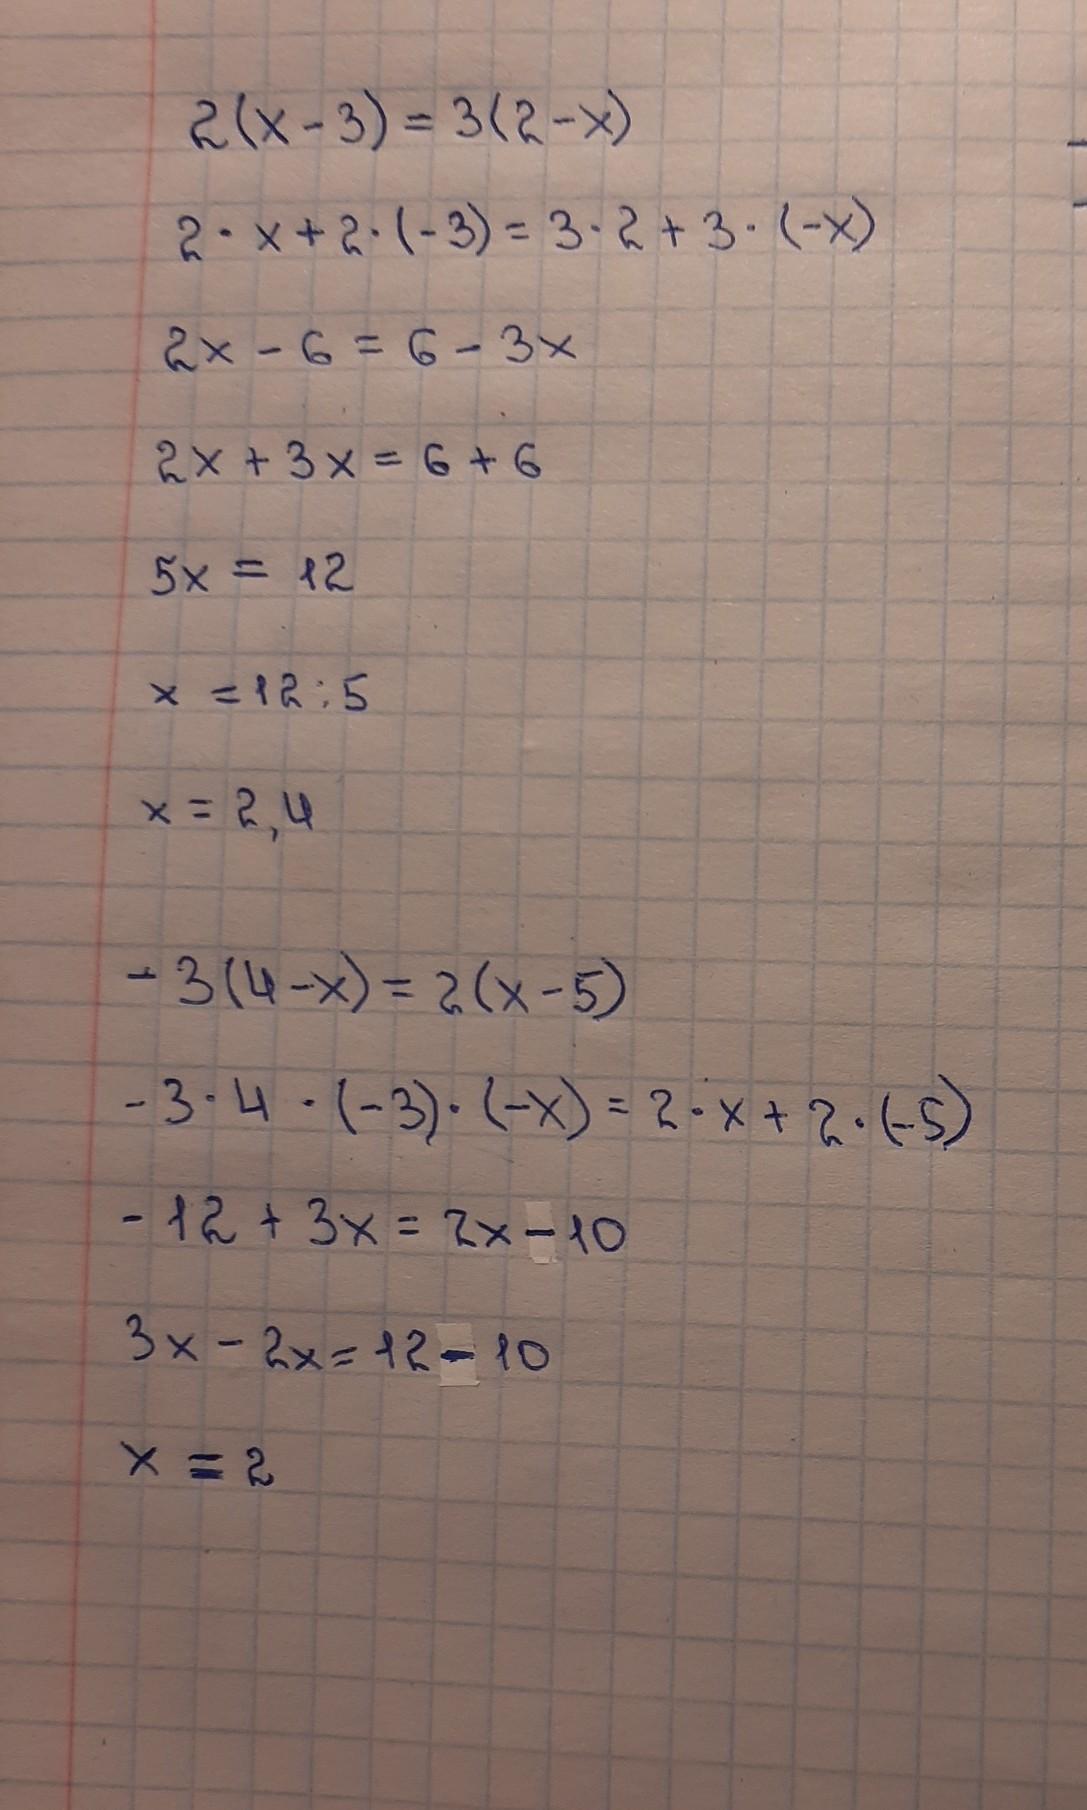 2(x-3)=3(2-x)
2·x+2·(-3)=3·2+3·(-x)
2x-6=6-3x
2x+3x=6+6
5x=12
x=12:5
x=2,4
-3(4-x)=2(x-5)
-3·4·(-3)·(-x)=2·x+2·(-5)
-12+3x=2x-10
3x-2x=12-10
x=2